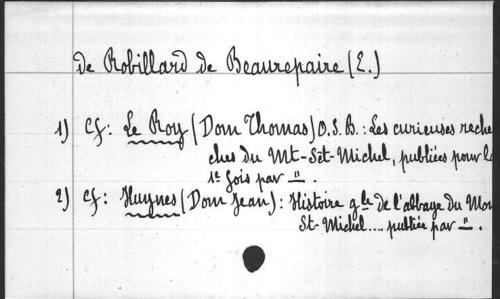 de Robillard de Beaurepaire (E.)
1) Cf: Le Roy (Dom Thomas) O.S.B.: Les curieuses reche
ches du Mt-Sêt-Michel, publiées pour la
1e fois par -"-.
2) Cf: Huynes (Dom Jean): Histoire gle de l'abbaye du Mon
St-Michel.... publiée par -"-.